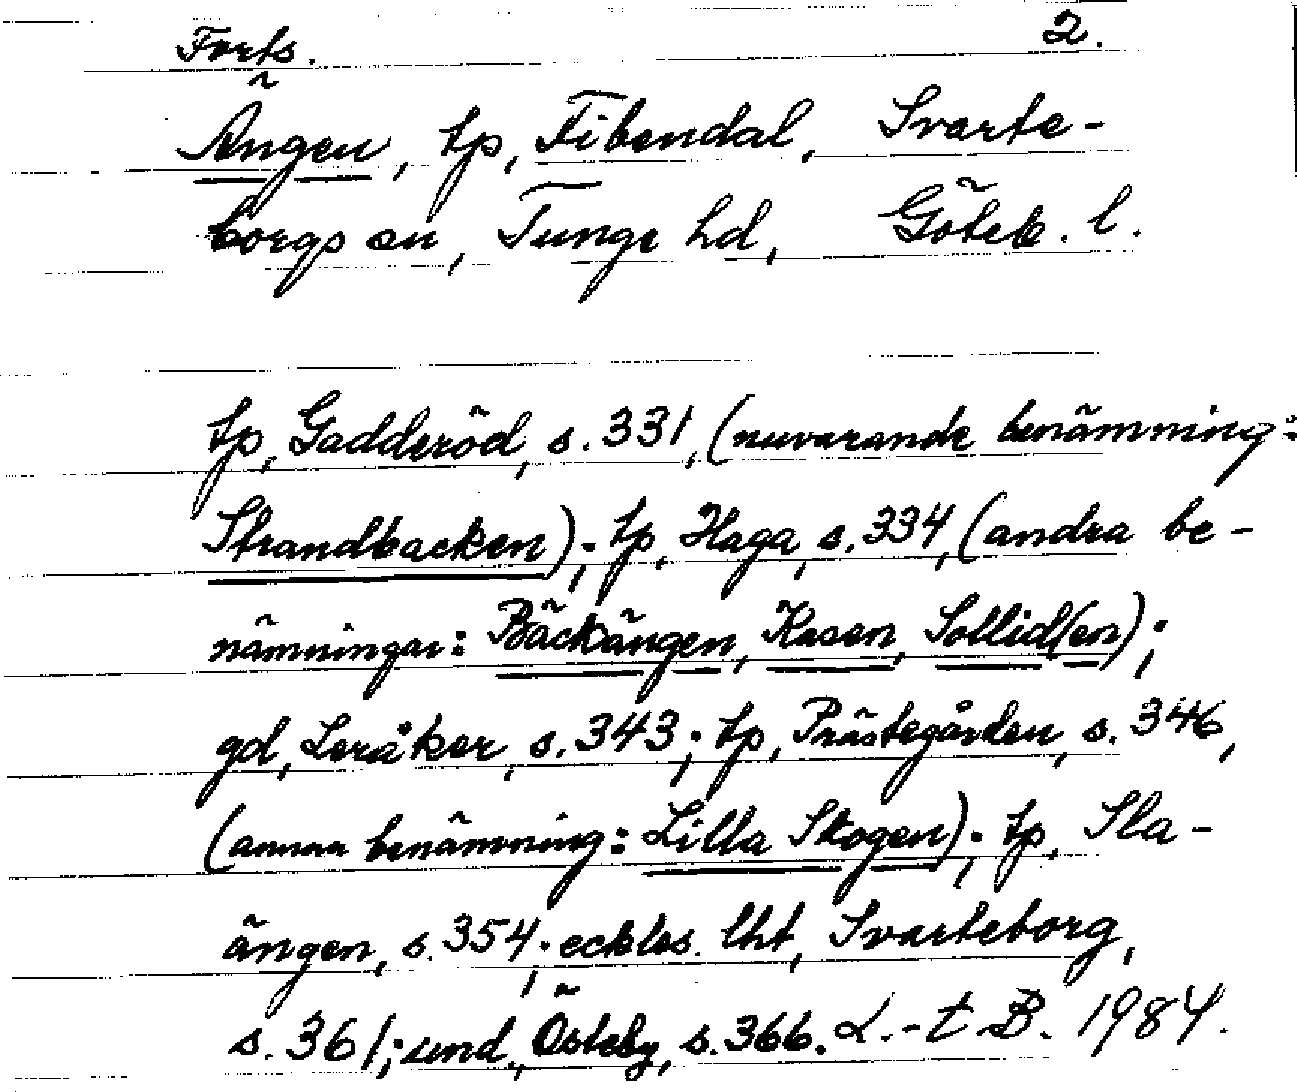 Forts. 2.
Ängen, tp, Fibendal, Svarte-
borgs sn, Tunge hd, Göteb. l.
tp, Gadderöd, s. 331, (nuvarande benämning:
Strandbacken); tp, Haga, s. 334, (andra be-
nämningar: Bäckängen, Kasen, Sollid(en);
gd, Leråker, s. 343; tp, Prästegården, s. 346,
(annan benämning: Lilla Skogen); tp, Sla-
ängen, s. 354; eckles. lht, Svarteborg,
s. 361; und., Östeby, s. 366. L.-t B. 1984.